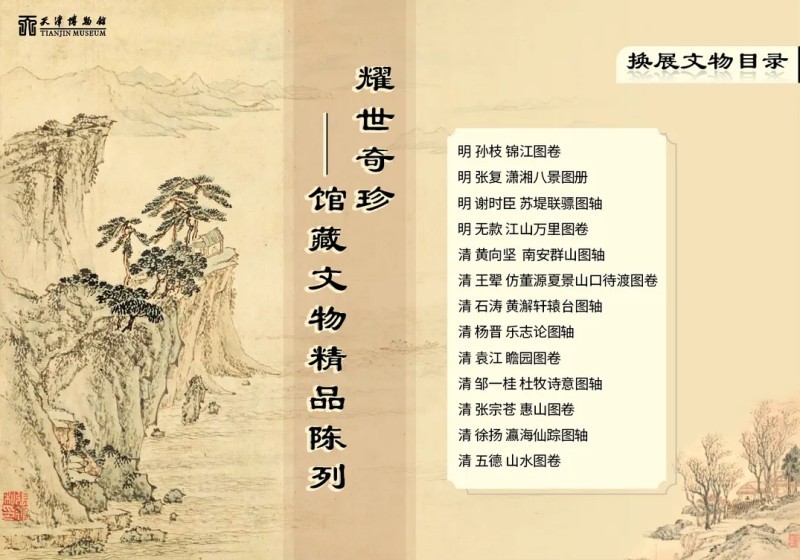 天津博物館
TIANJIN MUSEUM
耀世奇珍
——馆藏文物精品陈列
换展文物目录
明 孙枝 锦江图卷
明 张复 潇湘八景图册
明 谢时臣 苏堤联骠图轴
明 无款 江山万里图卷
清 黄向坚 南安群山图轴
清 王翚 仿董源夏景山口待渡图卷
清 石涛 黄澥轩辕台图轴
清 杨晋 乐志论图轴
清 袁江 瞻园图卷
清 邹一桂 杜牧诗意图轴
清 张宗苍 惠山图卷
清 徐扬 瀛海仙踪图轴
清 五德 山水图卷